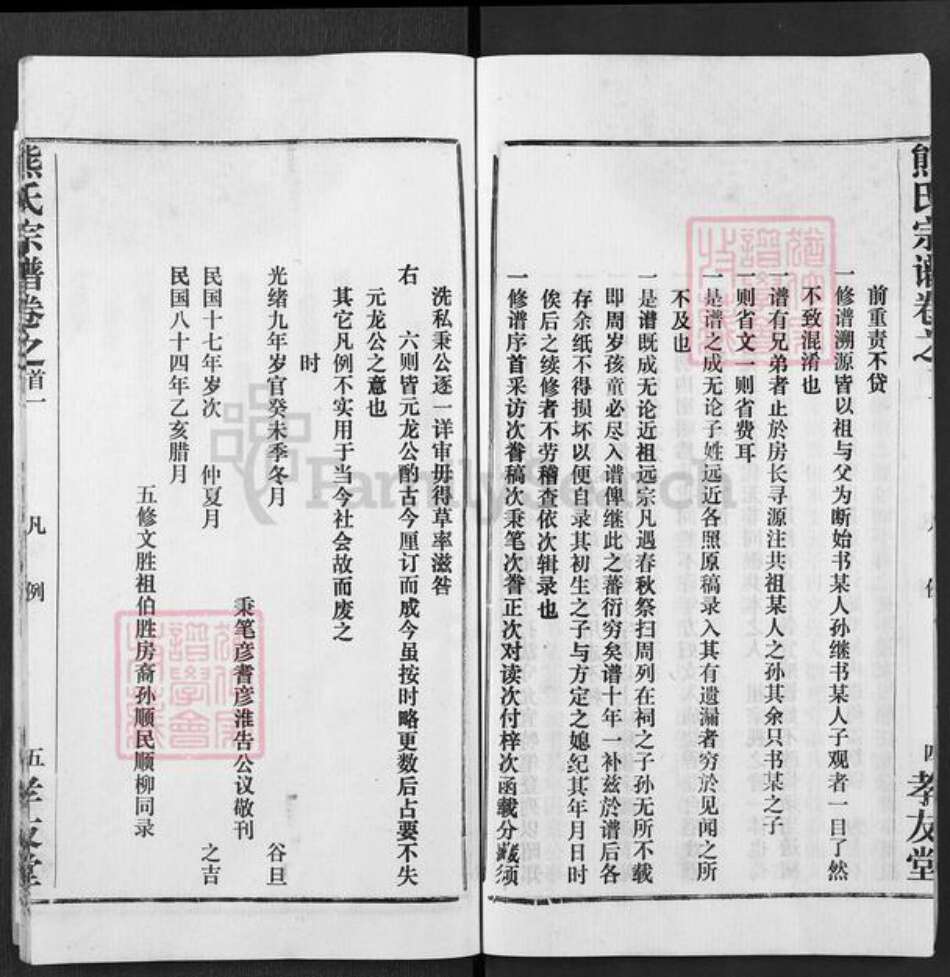 熊氏宗谱卷之
四 孝友堂
前重责不贷
一修谱溯源皆以祖与父为断始书某人孙继书某人子观者一目了然
不致混淆也
一谱有兄弟者止於房长寻源注共祖某人之孙其余只书某之子
一则省文一则省费耳
一是谱之成无论子姓远近各照原稿录入其有遗漏者穷於见闻之所
不及也
一是谱既成无论近祖远宗凡遇春秋祭扫周列在祠之子孙无所不载
即周岁孩童必尽入谱俾继此之蕃衍穷矣谱十年一补兹於谱后各
存余纸不得损坏以便自录其初生之子与方定之媳纪其年月日时
俟后之续修者不劳稽查依次辑录也
一修谱序首采访次誊稿次秉笔次誊正次对读次付梓次函载分藏须
洗私秉公逐一详审毋得草率滋咎
右 六则皆元龙公酌古今厘订而威今虽按时略更数后占要不失
元龙公之意也
其它凡例不实用于当今社会故而废之
时
光绪九年岁官癸未季冬月 谷旦
秉笔彦耆彦淮告公议敬刊
民国十七年岁次 仲夏月 之吉
民国八十四年乙亥腊月
五修文胜祖伯胜房裔孙顺民顺柳同录
熊氏宗谱卷之首一
凡例
五 孝友堂
FamilySearch